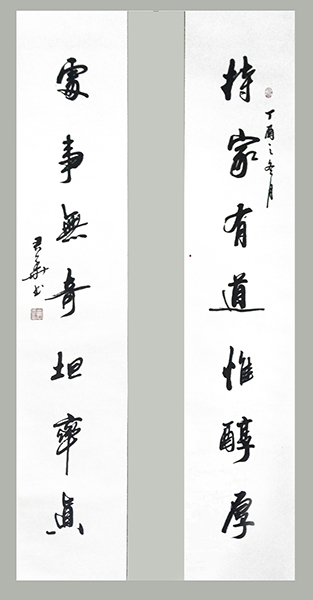 持家有道惟醇厚
丁酉之冬月
處事無奇坦率真
君華书